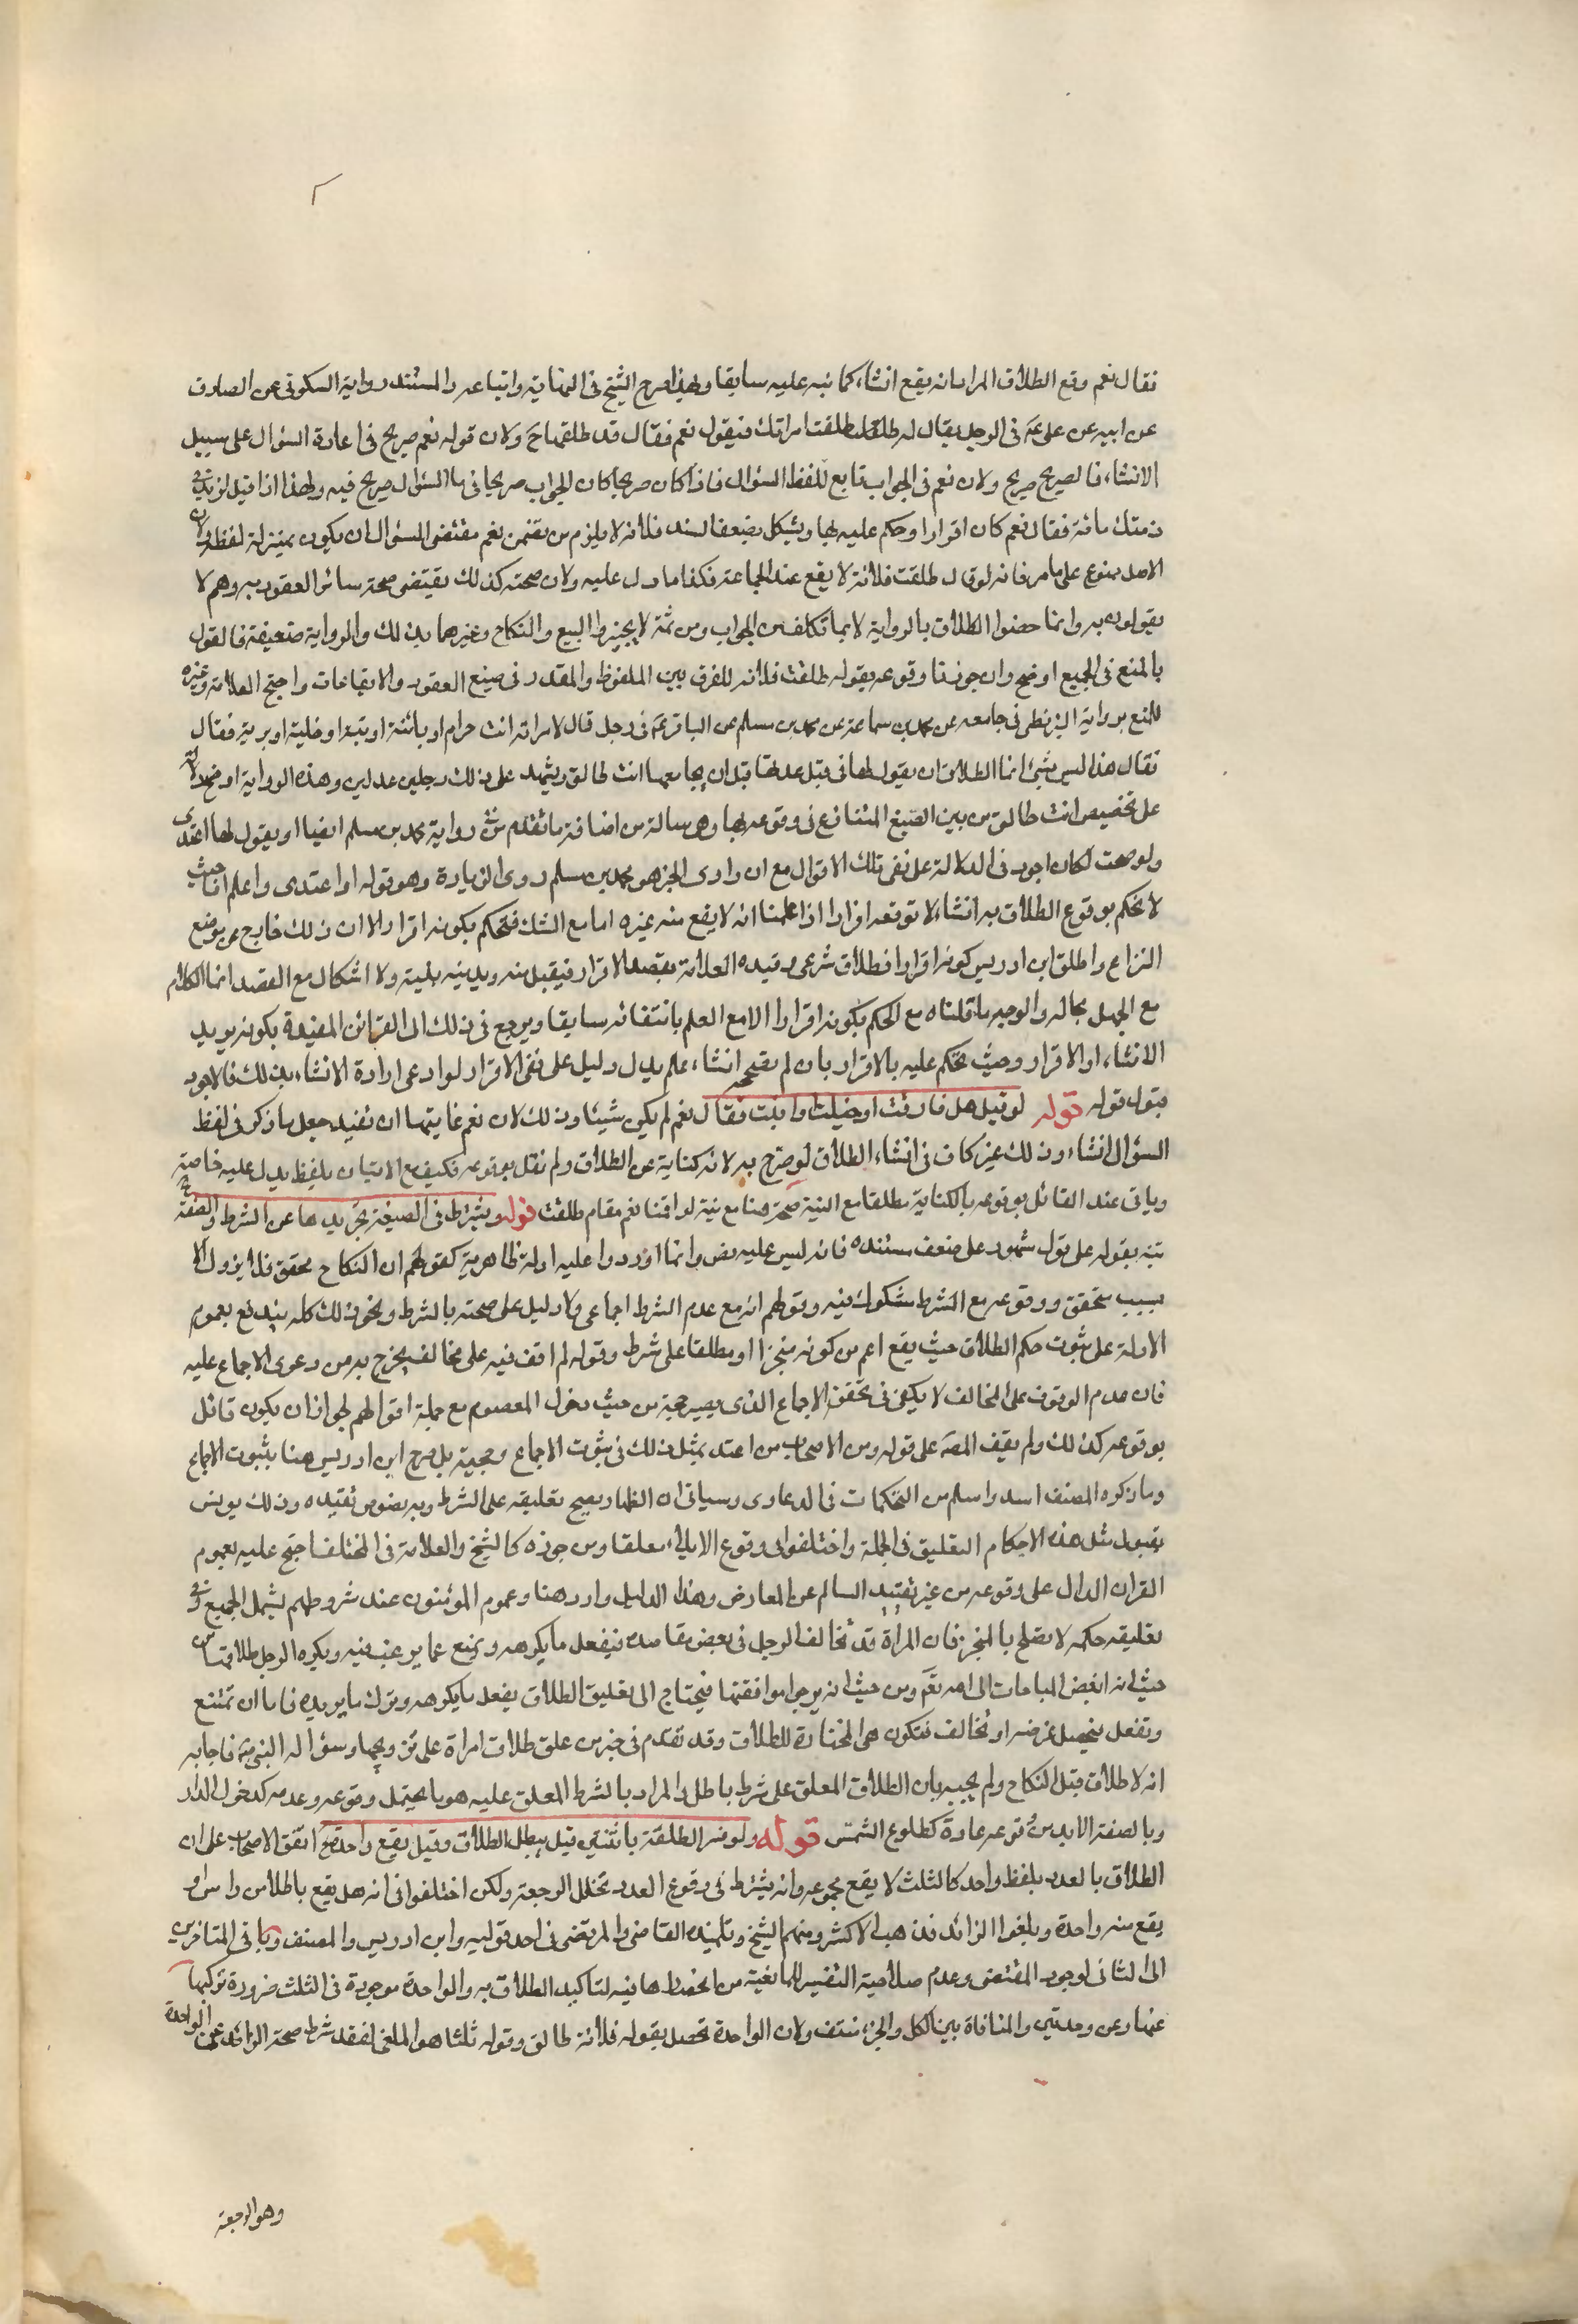 فقال نعم وقع الطلاق المراد انه يقع انشاء كما نبه عليه سابقا وبهذا صرح الشيخ في النهاية واتباعه والمستند رواية السكوني عن الصادق
عن ابيه عن علي ع في الرجل يقال له طلقت امراتك فيقول نعم فقال قد طلقها ح ولان قوله نعم صريح في اعادة السؤال على سبيل
الانشاء فالصريح صريح ولان نعم في الجواب تابع للفظ السؤال فاذا كان صريحا كان الجواب صريحا فيما السؤال صريح فيه ولهذا اذا قيل لزيد في
ذمتك مائة فقال نعم كان اقرارا وحكم عليه بها ويشكل بضعف السند فلانه لا يلزم من تضمن نعم مقتضى السؤال ان يكون بمنزلة لفظه لان
الاصل ممنوع على ما مر فانه لو قال طلقت فلانة لا يقع عند الجماعة فكذا ما دل عليه ولان صحته كذلك يقتضي صحة سائر العقود به وهم لا
يقولون به وانما خصوا الطلاق بالرواية لا بما تكلف من الجواب ومن ثمة لا يجيزوا البيع والنكاح وغيرهما بذلك والرواية ضعيفة فالقول
بالمنع في الجميع اوضح وان جوزنا وقوعه بقوله طلقت فلانه للفرق بين الملفوظ والمقدر في صيغ العقود والايقاعات واحتج العلامة وغيره
للمنع برواية البزنطي في جامعه عن محمد بن سماعة عن محمد بن مسلم عن الباقر ع في رجل قال لامراته انت حرام او بائنة او بتة او خلية او برية فقال
فقال هذا ليس بشئ انما الطلاق ان يقول لها في قبل عدتها قبل ان يجامعها انت طالق ويشهد على ذلك رجلين عدلين وهذه الرواية اوضح دلالة
على تخصيص انت طالق من بين الصيغ المتنازع في وقوعه بها وهي سالمة من اضافة ما تقدم من رواية محمد بن مسلم ايضا او يقول لها اعتدى
ولو صحت لكان اجود في الدلالة على نفي تلك الاقوال مع ان راوى الخبر هو محمد بن مسلم روى الزيادة وهو قوله او اعتدى واعلم انا حيث
لا نحكم بوقوع الطلاق به انشاء لا نوقعه اقرارا اذا علمنا انه لا يقع منه غيره اما مع الشك فنحكم بكونه اقرارا الا ان ذلك خارج عن موضع
النزاع واطلق ابن ادريس كونه اقرارا بطلاق شرعي وقيده العلامة بقصد الاقرار فيقبل منه ويدينه بنيته ولا اشكال مع القصد انما الكلام
مع الجهل بحاله والوجه ما قلناه مع الحكم بكونه اقرارا الا مع العلم بانتفائه سابقا ويرجع في ذلك الى القرائن المفيدة بكونه يريد
الانشاء او الاقرار وحيث نحكم عليه بالاقرار بان لم نصححه انشاء علم يدل دليل على نفي الاقرار لو ادعى ارادة الانشاء بذلك فالاجود
قبول قوله قوله لو قيل هل فارقت او خليت او ابنت فقال نعم لم يكن شيئا وذلك لان نعم غايتها ان تفيد جعل ما ذكر في لفظ
السؤال انشاء وذلك غير كاف في انشاء الطلاق لو صرح به لانه كناية عن الطلاق ولم نقل بوقوعه فكيف مع الاتيان بلفظ يدل عليه خاصة
وياتي عند القائل بوقوعه بالكناية مطلقا مع النية صحته هنا مع نية لو اقمنا نعم مقام طلقت قوله ويشترط في الصيغة تجريدها عن الشرط والصفة
نبه بقوله على قول مشهور على ضعف مستنده فانه ليس عليه نص وانما اوردوا عليه ادلة ظاهرية كقولهم ان النكاح محقق فلا يزول الا
بسبب متحقق ووقوعه مع الشرط مشكوك فيه وقولهم انه مع عدم الشرط اجماعي ولا دليل على صحته بالشرط ونحو ذلك كله يندفع بعموم
الادلة على ثبوت حكم الطلاق حيث يقع اعم من كونه منجزا او معلقا على شرط وقوله لم اقف فيه على مخالف يخرج به من دعوى الاجماع عليه
فان عدم الوقوف على المخالف لا يكفي في تحقق الاجماع الذى يصير حجة من حيث دخول المعصوم مع جملة اقوالهم لجواز ان يكون قائل
بوقوعه كذلك ولم يقف المصنف على قوله ومن الاصحاب من اعتد بمثل ذلك في ثبوت الاجماع وحجيته بل صرح ابن ادريس هنا بثبوت الاجماع
وما ذكره المصنف اسد واسلم من التحكمات في الدعاوى وسياتي ان الظهار يصح تعليقه على الشرط وبه نصوص تفيده وذلك يونس
بقبول مثل هذه الاحكام التعليق في الجملة واختلفوا في وقوع الايلاء معلقا ومن جوزه كالشيخ والعلامة في المختلف احتج عليه بعموم
القران الدال على وقوعه من غير تقييد السالم عن المعارض وهذا الدليل وارد هنا وعموم المؤمنون عند شروطهم يشمل الجميع وفي
تعليقه حكمة لا تصلح بالمنجز فان المراة قد تخالف الرجل في بعض مقاصده فيفعل ما يكرهه وتمنع عما يرغب فيه ويكره الرجل طلاقها من
حيث انه ابغض المباحات الى الله تعالى ومن حيث انه يرجوا موافقتها فيحتاج الى تعليق الطلاق بفعل ما يكرهه وترك ما يريده فاما ان تمتنع
وتفعل فيحصل غرضه او تخالف فتكون هي المختارة للطلاق وقد تقدم في خبر من علق طلاق امراة على تزويجها وسؤاله النبي ص فاجابه
انه لا طلاق قبل النكاح ولم يجبه بان الطلاق المعلق على شرط باطل والمراد بالشرط المعلق عليه هو ما يحتمل وقوعه وعدمه كدخول الدار
وبالصفة لا بد من وقوعه عادة كطلوع الشمس قوله ولو فسر الطلقة باثنتين قيل يبطل الطلاق وقيل يقع واحدة اتفق الاصحاب على ان
الطلاق بالعدد بلفظ واحد كالثلث لا يقع مجموعه وانه يشترط في وقوع العدد تخلل الرجعة ولكن اختلفوا في انه هل يقع باطلا من راس او
يقع منه واحدة ويلغوا الزائد فذهب الاكثر ومنهم الشيخ وتلميذه القاضي والمرتضى في احد قوليه وابن ادريس والمصنف وباقي المتاخرين
الى الثاني لوجود المقتضى وعدم صلاحية التفسير للمانعية من انحصارها فيه لتاكيد الطلاق به والواحدة موجودة في الثلث ضرورة تركبها
عنها وعن وحدتين والمنافاة بين الكل والجزء منتف ولان الواحدة تحصل بقوله فلانة طالق وقوله ثلثا هو الملغى لفقد شرط صحة الزائد عن الواحدة
وهو الرجعة